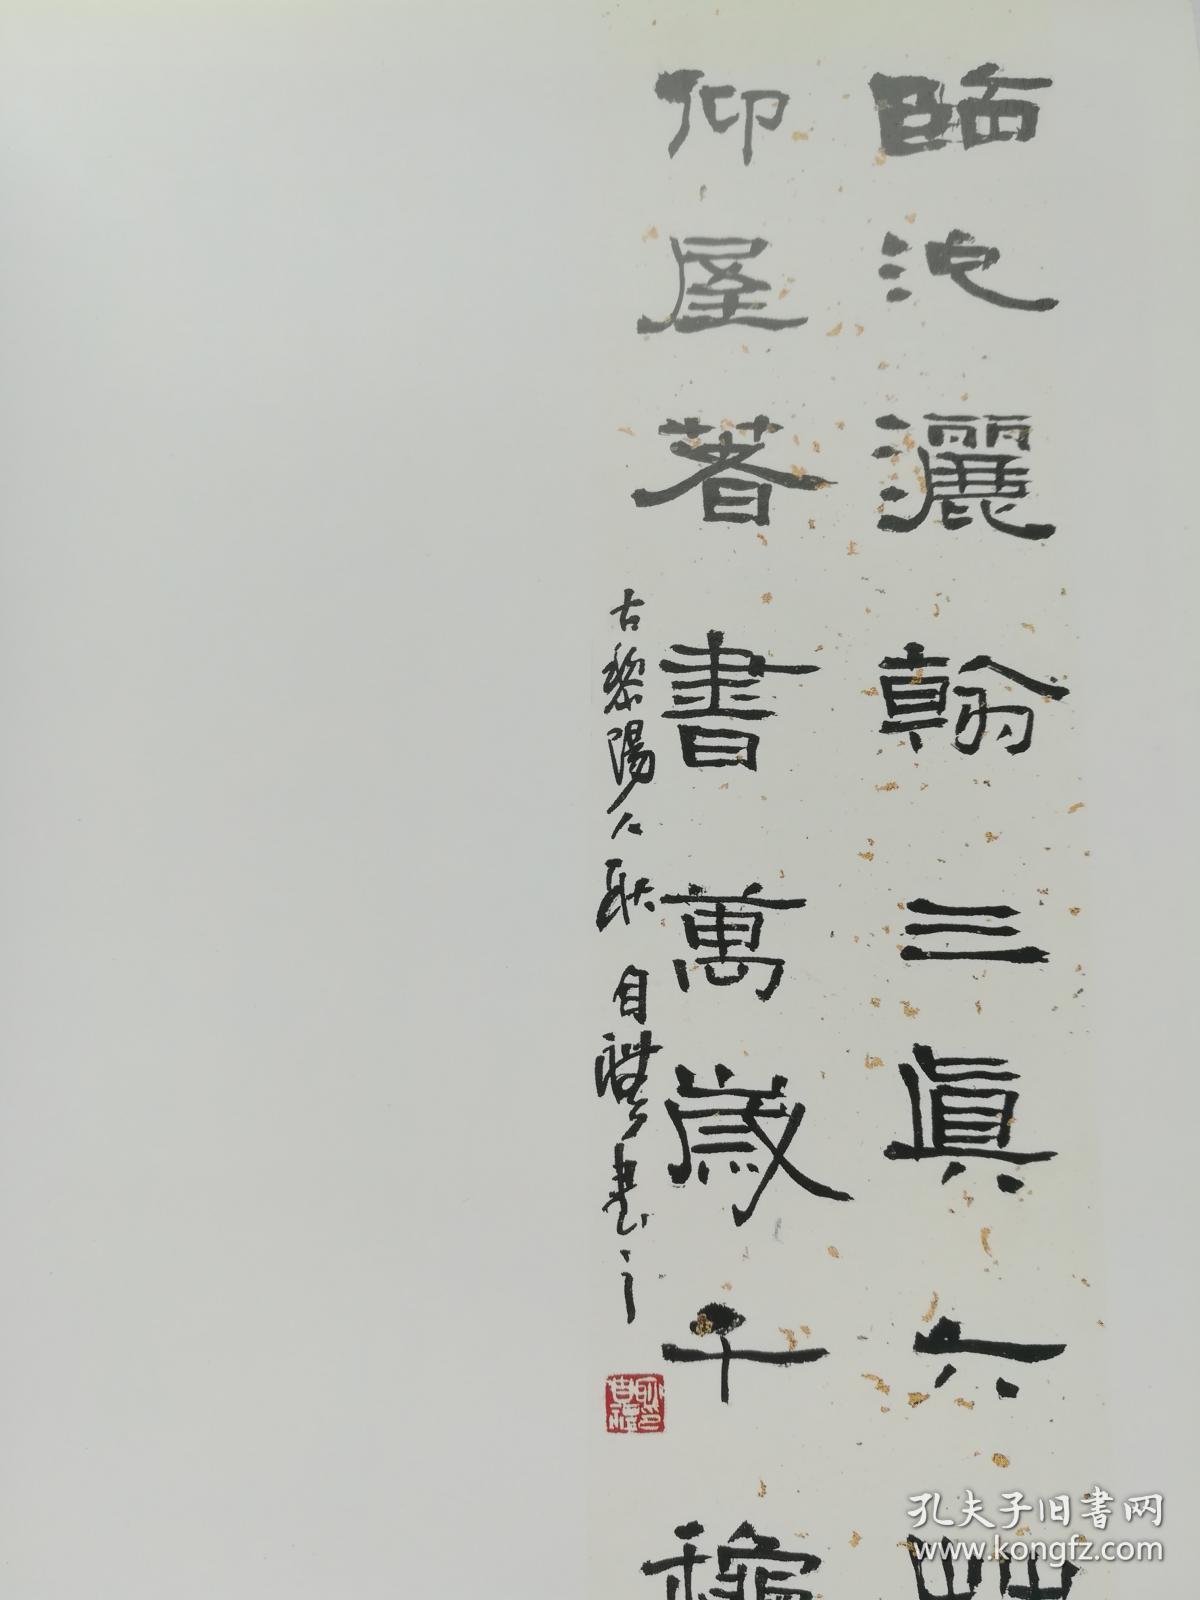 臨池灑翰三真六艸
仰屋著書萬歲千穐
古黎陽人耿自禮書之
孔夫子旧书网
www.kongfz.com